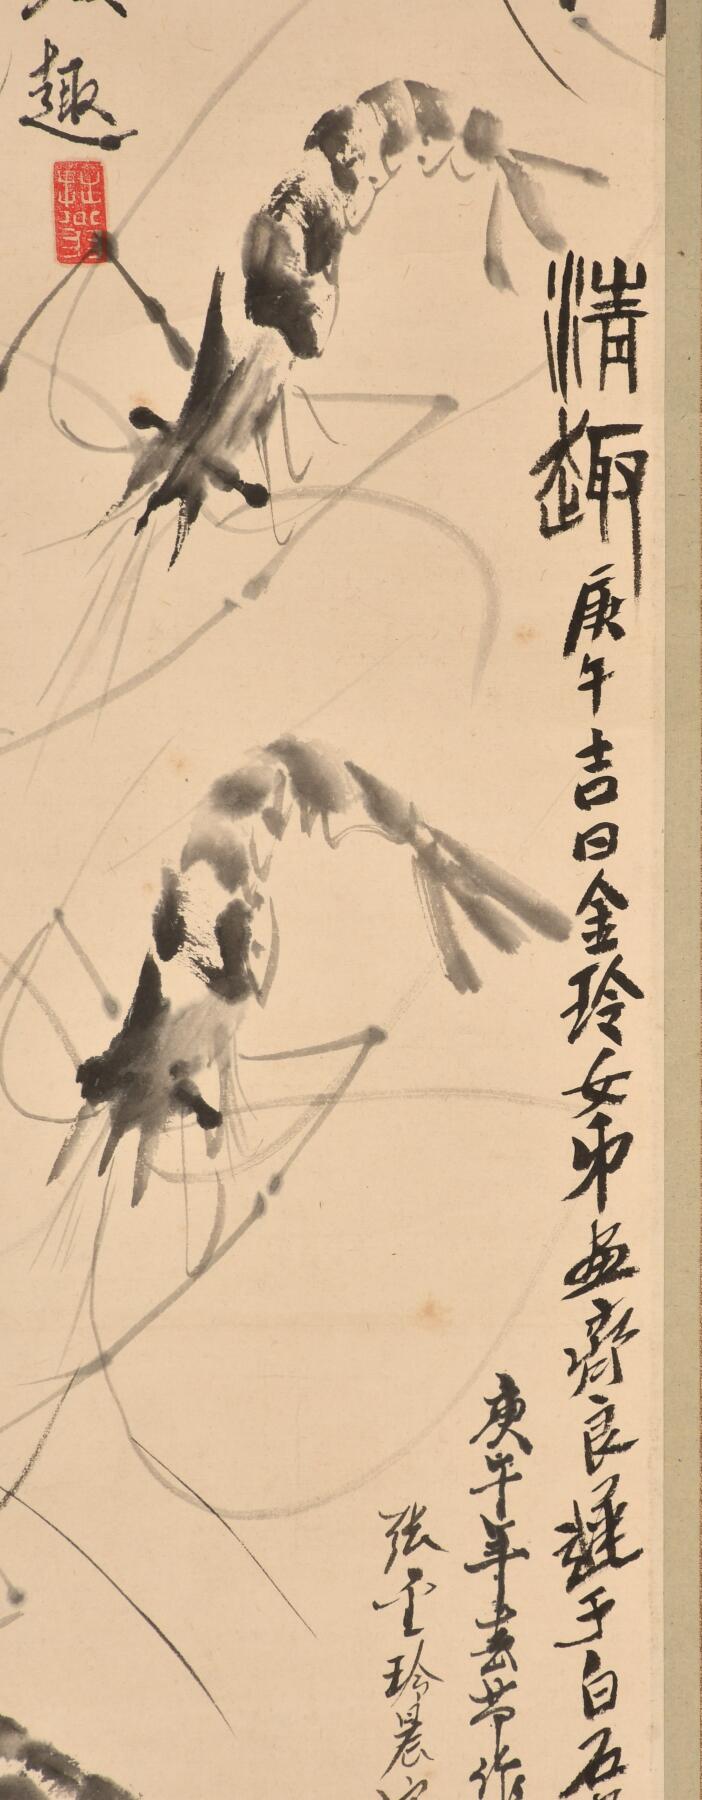 清趣庚午吉日金玲女弟画齐良迟于白石
庚午年春节作
张金玲晨
趣